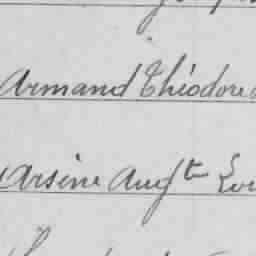 Armand Théodore
Arsène Augte Lou